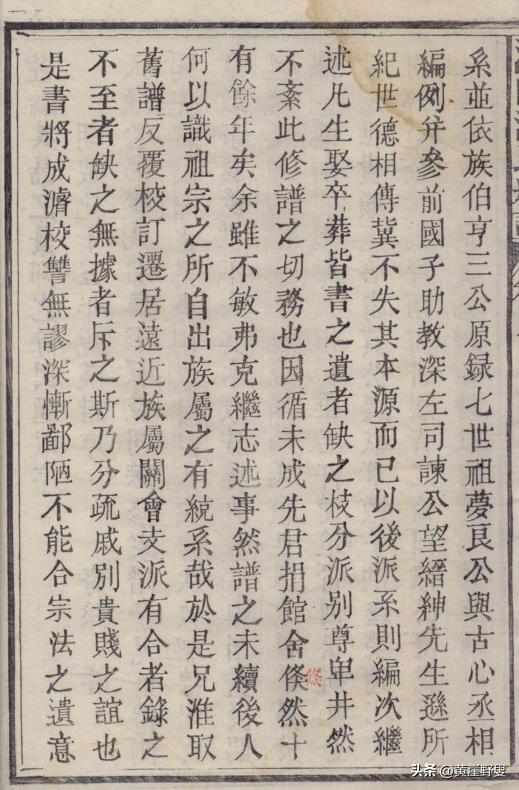 系並依族伯亨三公原録七世祖夢良公與古心丞相
編例并參前國子助教深左司諫公望縉紳先生遜所
紀世德相傳冀不失其本源而已以後派系則編次繼
述凡生娶卒葬皆書之遺者缺之枝分派別尊卑井然
不紊此修譜之切務也因循未成先君捐館舍倏然十
有餘年矣余雖不敏弗克繼志述事然譜之未續後人
何以識祖宗之所自出族屬之有統系哉於是兄淮取
舊譜反覆校訂遷居遠近族屬關會支派有合者錄之
不至者缺之無據者斥之斯乃分疏戚別貴賤之誼也
是書將成濬校讐無謬深慚鄙陋不能合宗法之遺意
頭条 @黄茬野叟